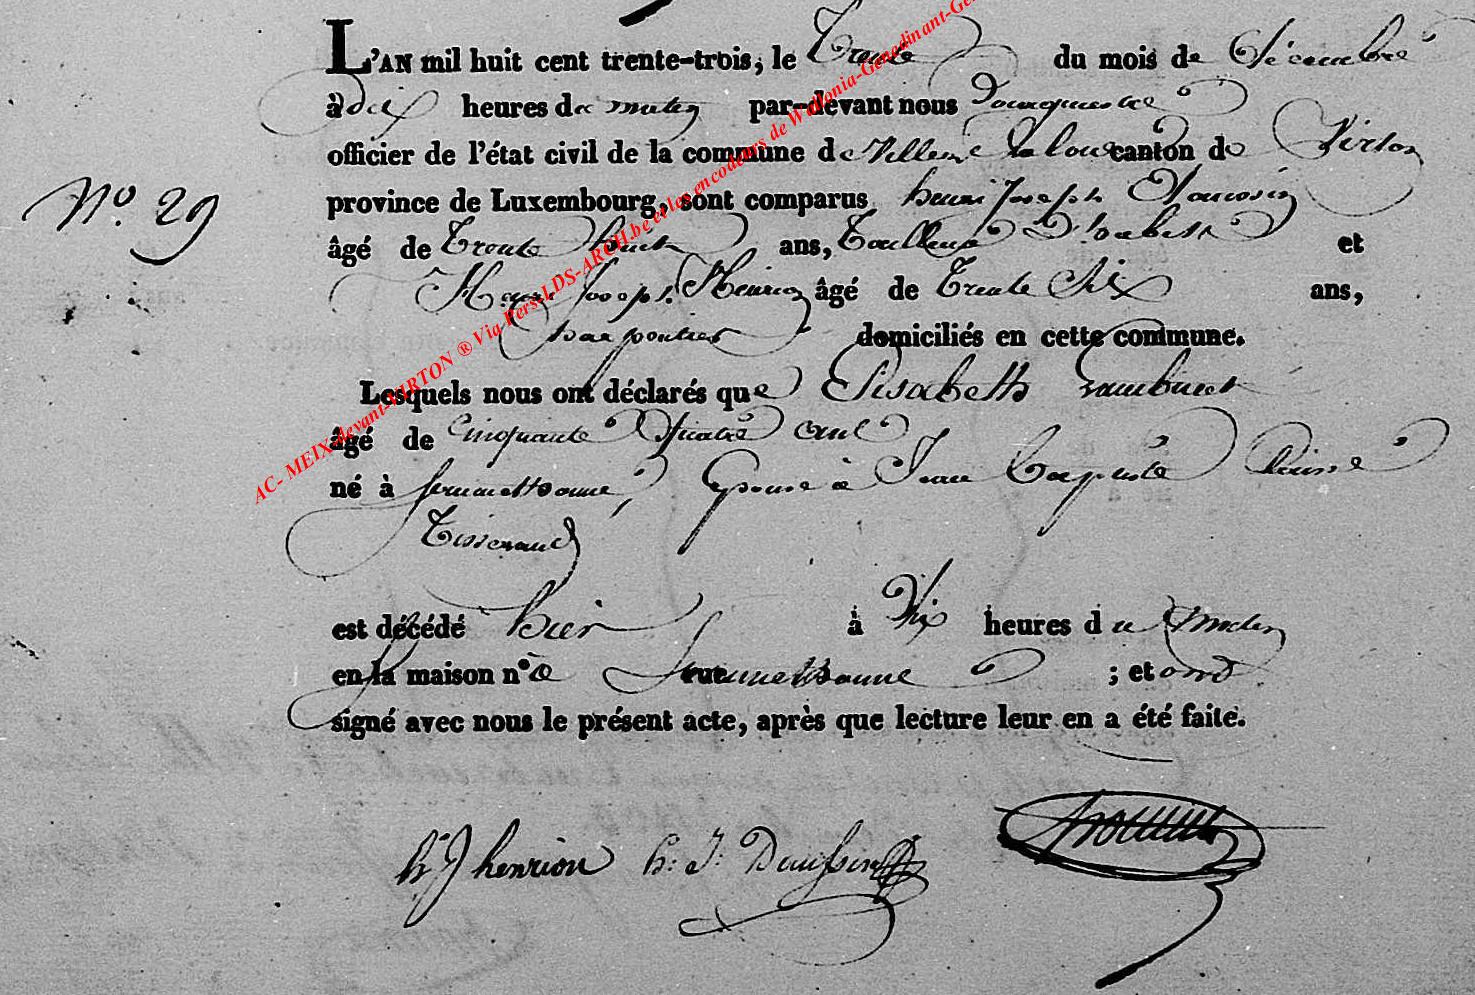 L'AN mil huit cent trente-trois, le Trente du mois de Décembre
à dix heures du matin par-devant nous
officier de l'état civil de la commune de Villers la loue canton de Virton
N.º 29
province de Luxembourg, sont comparus henri joseph
âgé de Trente huit ans, Tailleur d'habett et
Henri Joseph Henrion âgé de Trente Six ans,
charpentier domiciliés en cette commune.
Lesquels nous ont déclarés que Elisabeth
âgé de Cinquante quatre ans
né à Sommethonne, Epouse à Jean Baptiste
Tisserand
est décédé hier à dix heures du matin
en la maison nº à rue Sommethonne ; et ont
signé avec nous le présent acte, après que lecture leur en a été faite.
h J henrion h: J: Daussin
AC- MEIX-devant-VIRTON ® Via Pers-LDS-ARCH.be et les encodeurs de Wallonia-Genedinant-Ge